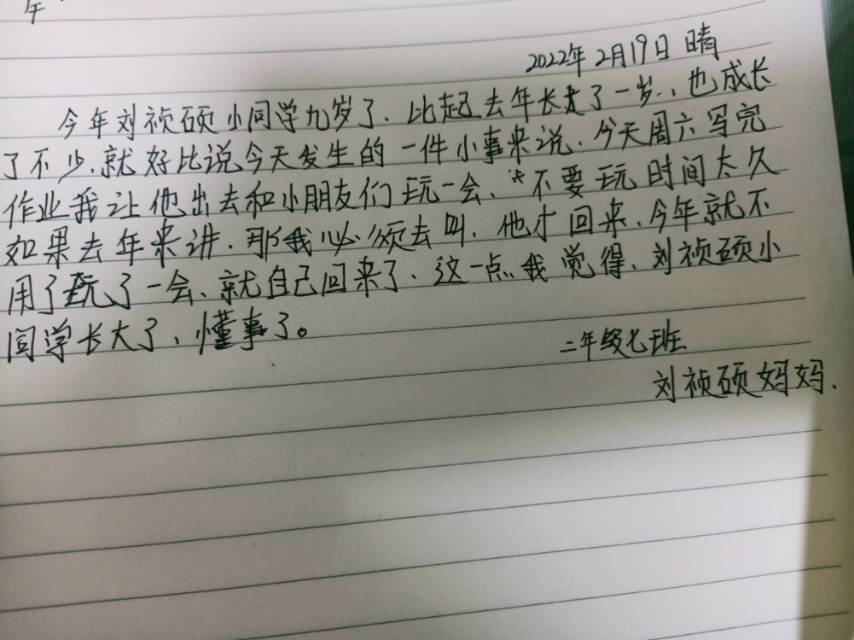 午
2022年2月19日 晴
今年刘祯硕小同学九岁了.比起去年长大了一岁.,也成长
了不少.就好比说今天发生的一件小事来说.今天周六写完
作业我让他出去和小朋友们玩一会、不要玩时间太久
如果去年来讲.那我必须去叫.他才回来.今年就不
用了玩了一会、就自己回来了.这一点我觉得.刘祯硕小
同学长大了、懂事了。
二年级七班
刘祯硕妈妈.